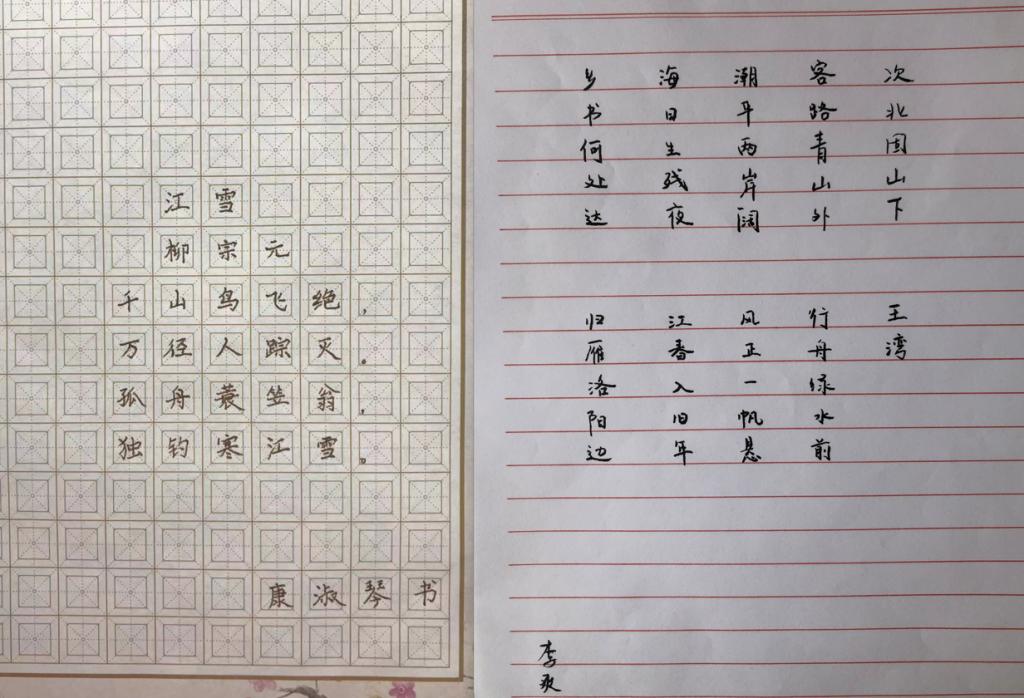 江雪
柳宗元
千山鸟飞绝，
万径人踪灭。
孤舟蓑笠翁，
独钓寒江雪。
康淑琴书
次北固山下
王湾
客路青山外
行舟绿水前
潮平两岸阔
风正一帆悬
海日生残夜
江春入旧年
乡书何处达
归雁洛阳边
李爽